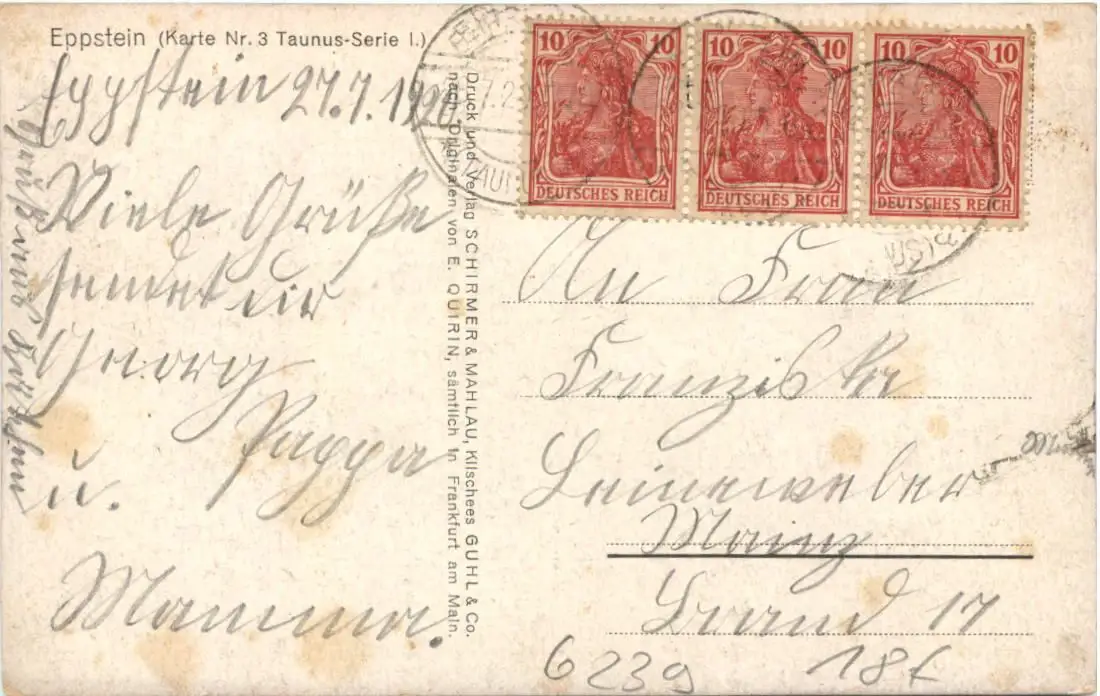 Eppstein (Karte Nr. 3 Taunus-Serie I.)
Eppstein 27.7.1920
Viele Grüße
sendet dir
Georg
Pappa
u.
Mamma.
Gruß aus
Druck und Verlag SCHIRMER & MAHLAU, Klischees GUHL & Co.
nach Originalen von E. QUIRIN, sämtlich in Frankfurt am Main.
10 10
DEUTSCHES REICH
10 10
DEUTSCHES REICH
10 10
DEUTSCHES REICH
An Frau
Franziska
Leineweber
Mainz
Brand 17
6239
18f